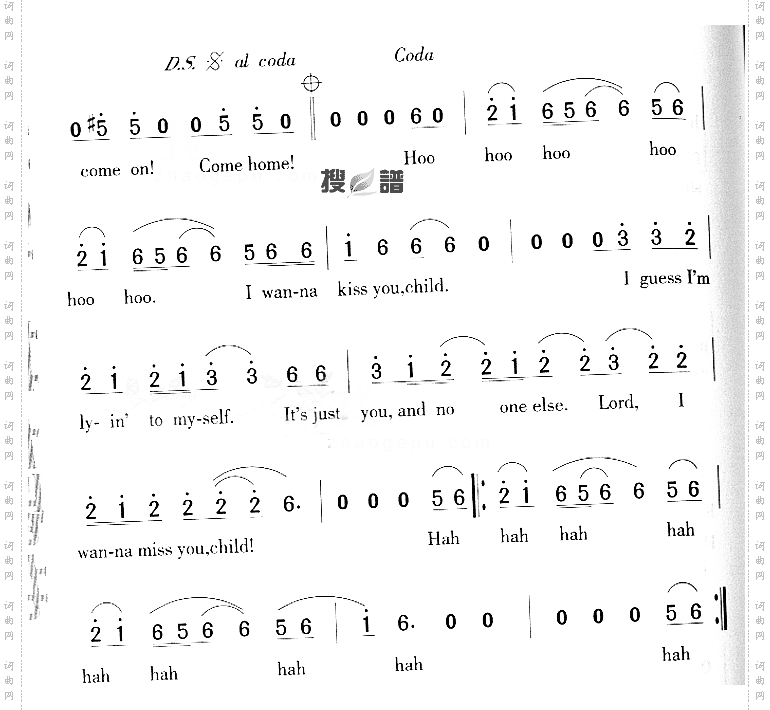 D.S. 𝄋 al coda Coda
0 #5̇ 5̇ 0 0 5̇ 5̇ 0 || 0 0 0 6 0 | 2̇ 1̇ 6 5 6 6 5 6 |
come on! Come home! Hoo hoo hoo hoo
搜 譜
2̇ 1̇ 6 5 6 6 5 6 6 | 1̇ 6 6 6 0 | 0 0 0 3̇ 3̇ 2̇ |
hoo hoo. I wan-na kiss you,child. I guess I'm
2̇ 1̇ 2̇ 1̇ 3̇ 3̇ 6 6 | 3̇ 1̇ 2̇ 2̇ 1̇ 2̇ 2̇ 3̇ 2̇ 2̇ |
ly- in' to my-self. It's just you, and no one else. Lord, I
2̇ 1̇ 2̇ 2̇ 2̇ 2̇ 6. | 0 0 0 5 6 |: 2̇ 1̇ 6 5 6 6 5 6 |
wan-na miss you,child! Hah hah hah hah
2̇ 1̇ 6 5 6 6 5 6 | 1̇ 6. 0 0 | 0 0 0 5 6 :|
hah hah hah hah hah